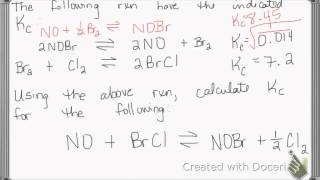 The following rxn have the indicated
Kc NO + ½Br₂ ⇌ NOBr Kc=8.45
2NOBr ⇌ 2NO + Br₂ Kc = √0.014
Br₂ + Cl₂ ⇌ 2BrCl Kc = 7.2
Using the above rxn, calculate Kc
for the following:
NO + BrCl ⇌ NOBr + ½Cl₂
Created with Doceri